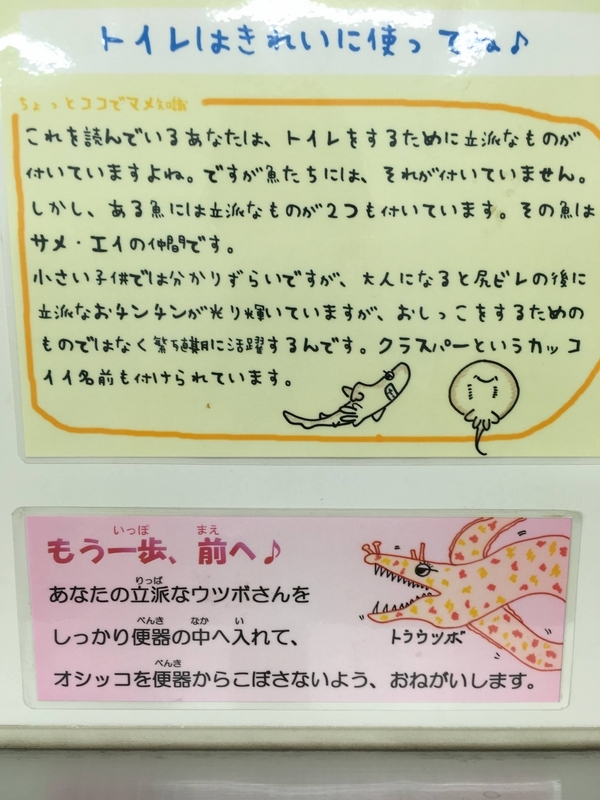 トイレはきれいに使ってね♪
ちょっとココでマメ知識
これを読んでいるあなたは、トイレをするために立派なものが
付いていますよね。ですが魚たちには、それが付いていません。
しかし、ある魚には立派なものが2つも付いています。その魚は
サメ・エイの仲間です。
小さい子供では分かりずらいですが、大人になると尻ビレの後に
立派なおチンチンが光り輝いていますが、おしっこをするための
ものではなく繁殖期に活躍するんです。クラスパーというカッコ
イイ名前も付けられています。
いっぽ まえ
もう一歩、前へ♪
りっぱ
あなたの立派なウツボさんを
べんき なか い
しっかり便器の中へ入れて、
トラウツボ
べんき
オシッコを便器からこぼさないよう、おねがいします。